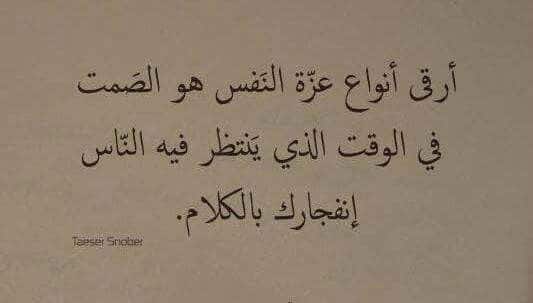 أرقى أنواع عزّة النَفس هو الصَمت
في الوقت الذي يَنتظر فيه النّاس
إنفجارك بالكلام.
Taeser Snober